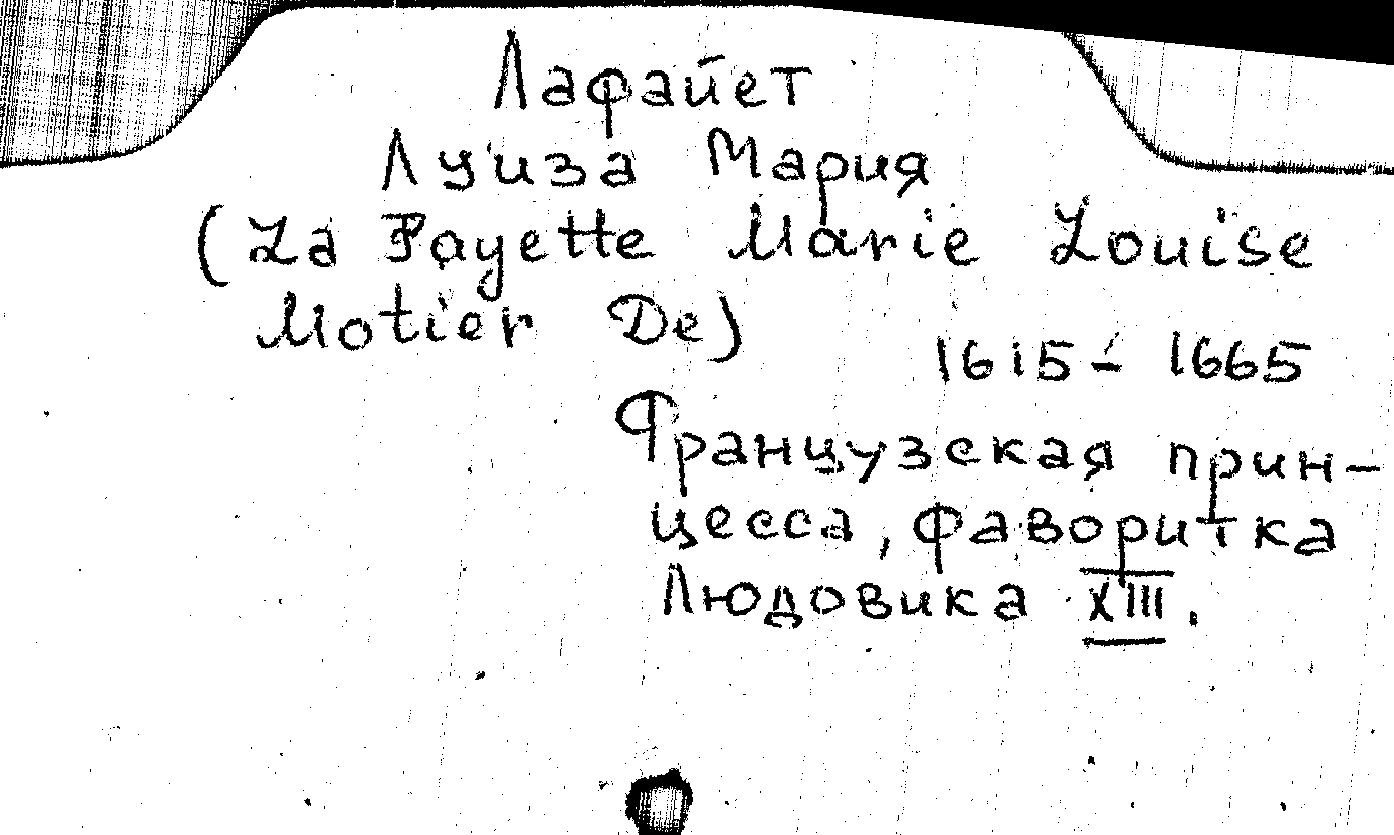 Лафайет
Луиза Мария
(La Fayette Marie Louise
Motier De)
1615 - 1665
Французская прин-
цесса, фаворитка
Людовика XIII.